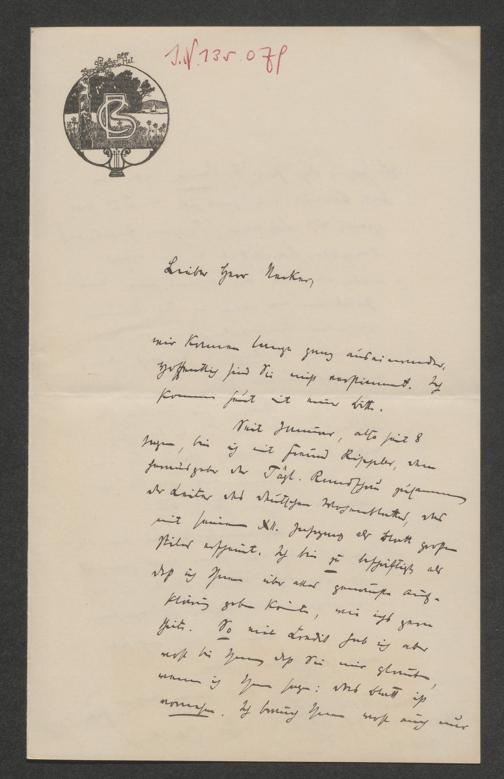 J.N. 135.078
CB
Lieber Herr Necker,
wir kommen lange ganz auseinander,
hoffentlich sind Sie nicht verstimmt. Ich
komme heut mit einer Bitte.
Seit Januar, also seit 8
Tagen, bin ich mit Freund Rippler, dem
Herausgeber der Tägl. Rundschau zusammen
der Leiter des deutschen Wochenblattes, das
mit seinem XII. Jahrgang als Blatt großen
Stiles erscheint. Ich bin zu beschäftigt als
daß ich Ihnen über alles genaueste Auf-
klärung geben könnte, wie ich's gern
thäte. So viel Kredit hab ich aber
wohl bei Ihnen, daß Sie mir glauben,
wenn ich Ihnen sage: das Blatt ist
vornehm. Ich brauch Ihnen wohl auch nur